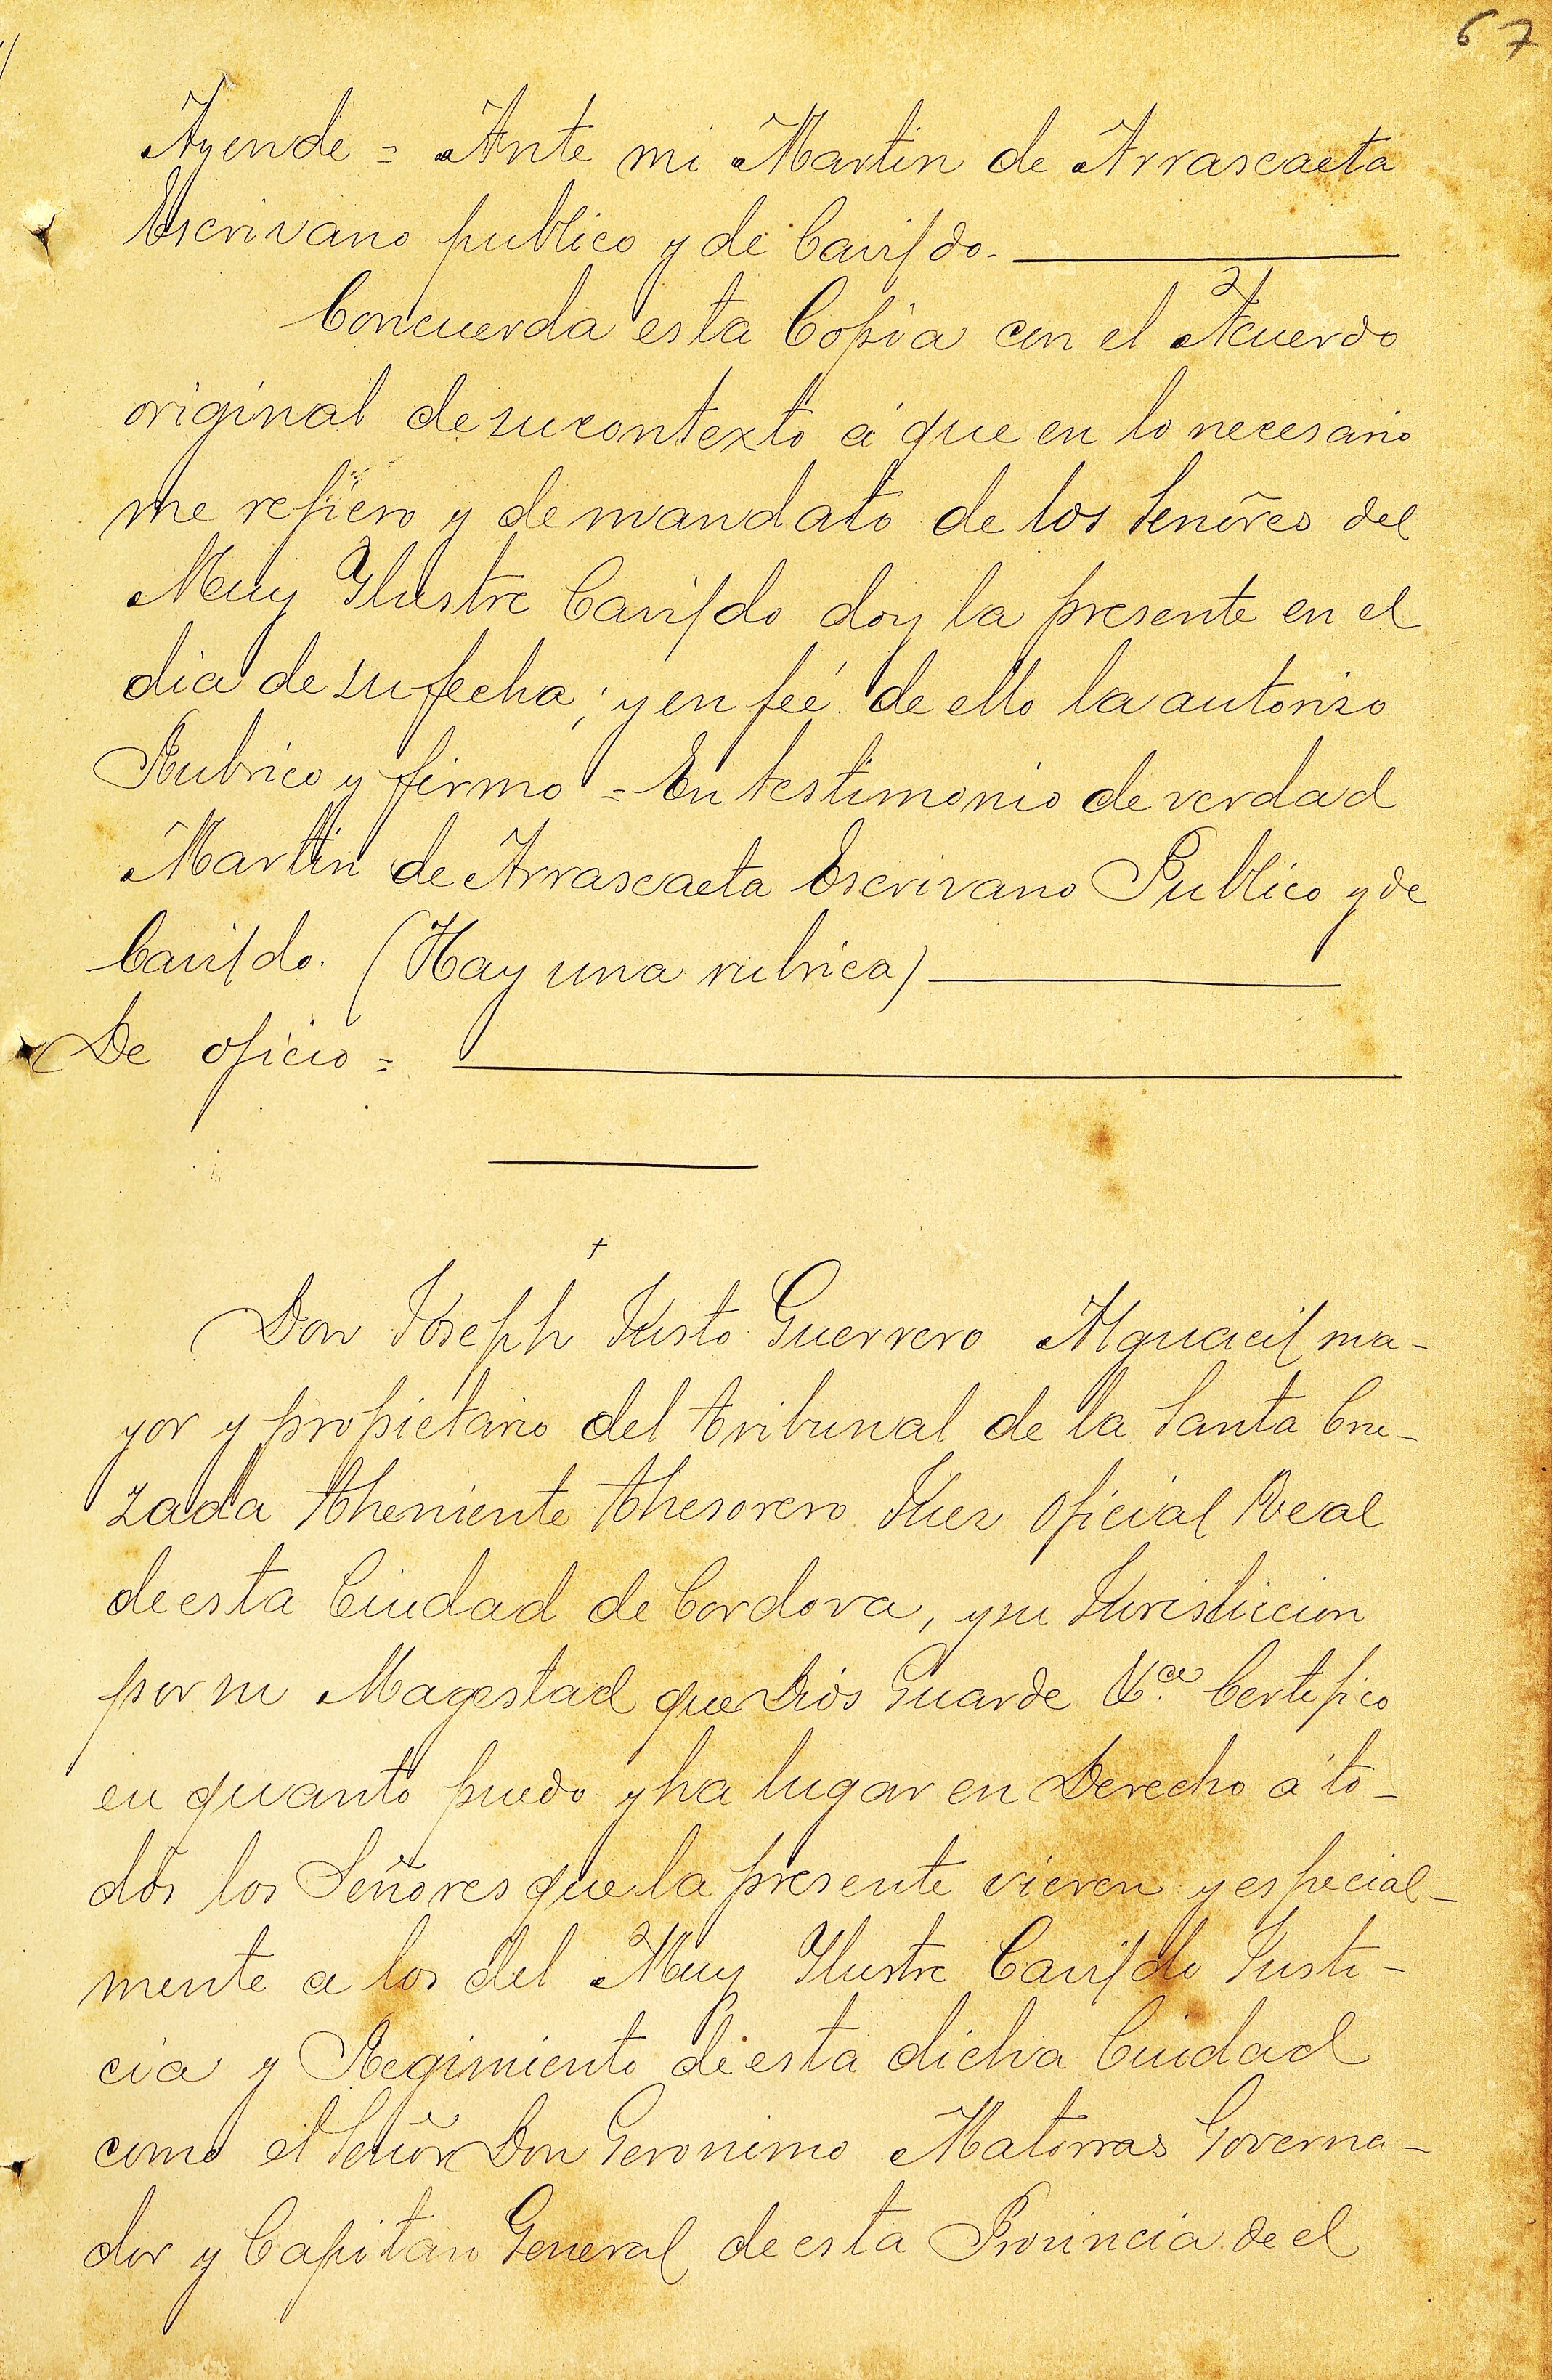 67
Ayende = Ante mi Martin de Arrascaeta
Escrivano publico y de Cavildo.
Concuerda esta Copia con el Acuerdo
original de su contexto á que en lo necesario
me refiero y de mandato de los Señores del
Muy Ylustre Cavildo doy la presente en el
dia de su fecha; y en feé de ello la autoriso
Rubrico y firmo = En testimonio de verdad
Martin de Arrascaeta Escrivano Publico y de
Cavildo. (Hay una rubrica)
De oficio =
+
Don Joseph Justo Guerrero Alguacil ma-
yor y propietario del tribunal de la Santa Cru-
zada theniente thesorero Juez oficial Real
de esta Ciudad de Cordova, y su Jurisdiccion
por su Magestad que Dios Guarde &.ª Certifico
en quanto puedo y ha lugar en Derecho á to-
dos los Señores que la presente vieren y especial-
mente a los del Muy Ylustre Cavildo Justi-
cia y Regimiento de esta dicha Ciudad
como el Señor Don Geronimo Matorras Governa-
dor y Capitan General de esta Provincia de el